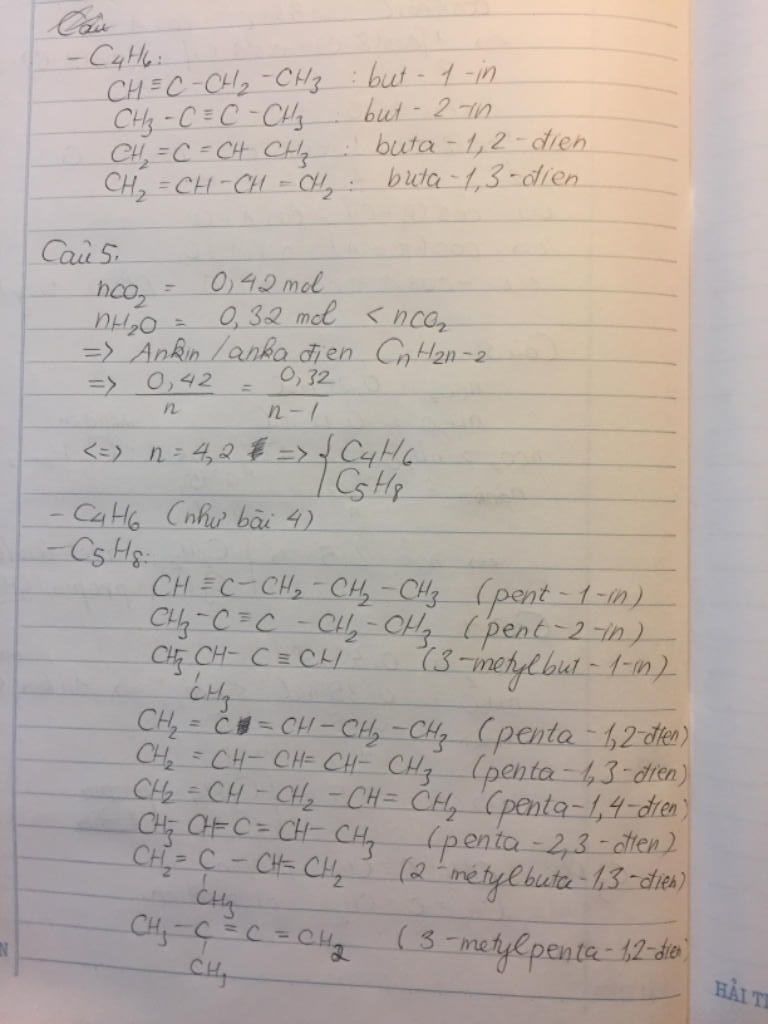 Câu
- C₄H₆:
CH ≡ C - CH₂ - CH₃ : but - 1 - in
CH₃ - C ≡ C - CH₃ : but - 2 - in
CH₂ = C = CH CH₃ : buta - 1,2 - đien
CH₂ = CH - CH = CH₂ : buta - 1,3 - đien
Câu 5.
nCO₂ = 0,42 mol
nH₂O = 0,32 mol < nCO₂
=> Ankin / anka đien CnH2n-2
=> 0,42/n = 0,32/(n - 1)
<=> n = 4,2 => { C₄H₆
C₅H₈
- C₄H₆ (như bài 4)
- C₅H₈:
CH ≡ C - CH₂ - CH₂ - CH₃ (pent - 1 - in)
CH₃ - C ≡ C - CH₂ - CH₃ (pent - 2 - in)
CH₃ CH - C ≡ CH (3 - metylbut - 1 - in)
CH₃
CH₂ = C = CH - CH₂ - CH₃ (penta - 1,2 - đien)
CH₂ = CH - CH = CH - CH₃ (penta - 1,3 - đien)
CH₂ = CH - CH₂ - CH = CH₂ (penta - 1,4 - đien)
CH₃ CH = C = CH - CH₃ (penta - 2,3 - đien)
CH₂ = C - CH = CH₂ (2 - metylbuta - 1,3 - đien)
CH₃
CH₃ - C = C = CH₂ (3 - metylpenta - 1,2 - đien)
CH₃
HẢI T